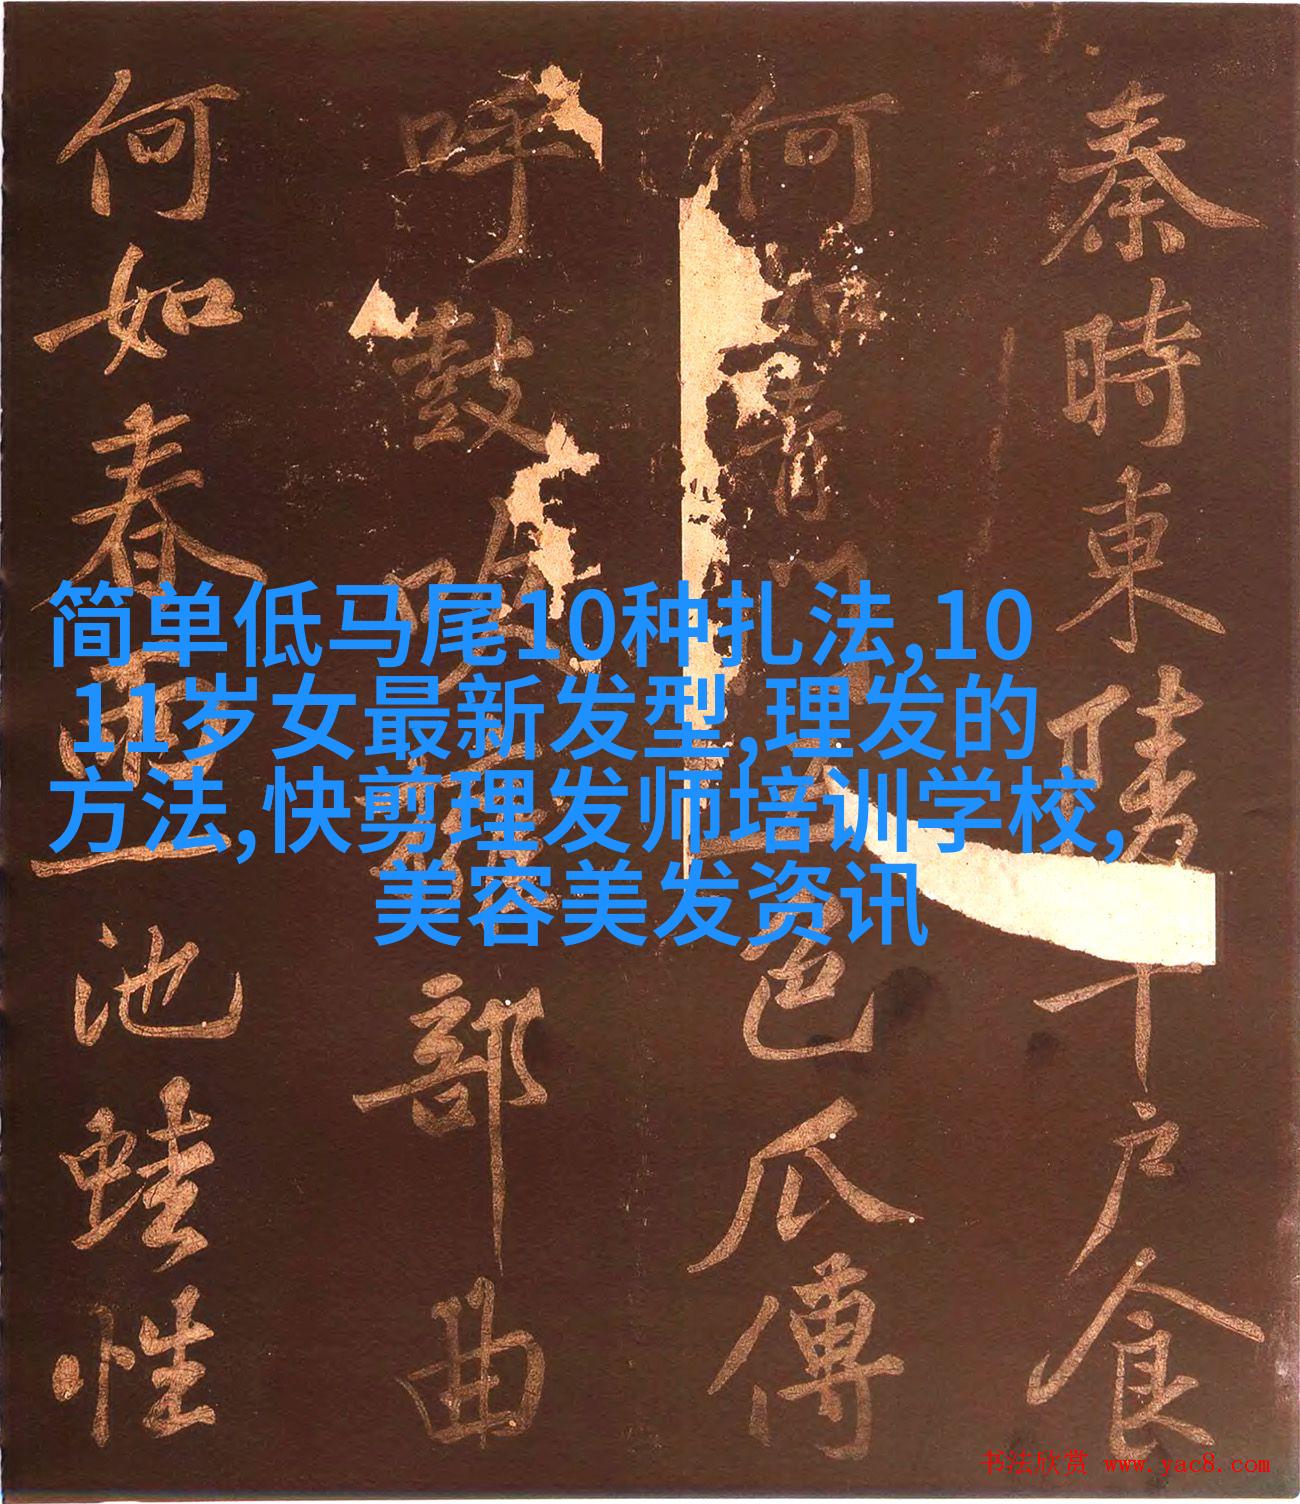 秦時東陵千戶食
何如青門五色瓜傳
呼鼓吹部曲
何如春雨一池蛙性
简单低马尾10种扎法,10
11岁女最新发型,理发的
方法,快剪理发师培训学校,
美容美发资讯
书法欣赏 www.yac8.com